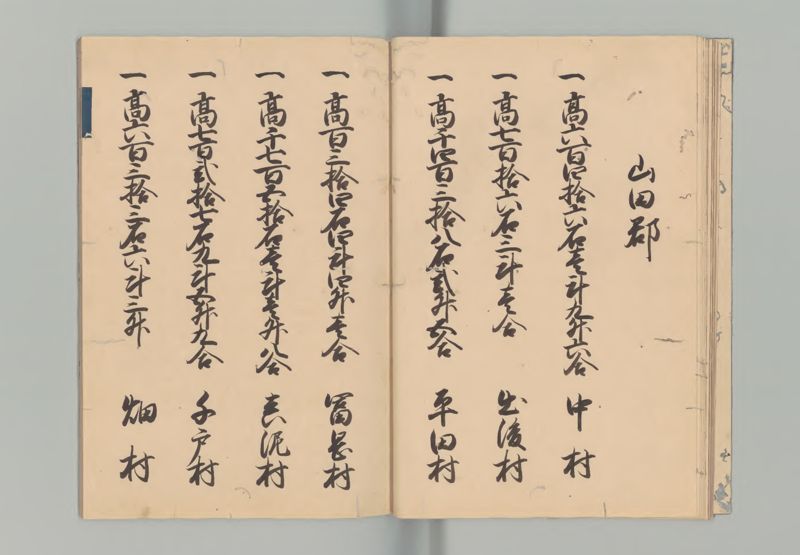 山田郡
一 高六百四拾六石壱斗九升六合 中村
一 高七百拾六石三斗壱合 出後村
一 高千四百三拾八石弐升五合 平田村
一 高百三拾四石四斗四升壱合 冨岡村
一 高千七百五拾石壱斗壱升八合 真泥村
一 高七百弐拾七石九斗五升九合 千戸村
一 高六百三拾三石六斗三升 畑村